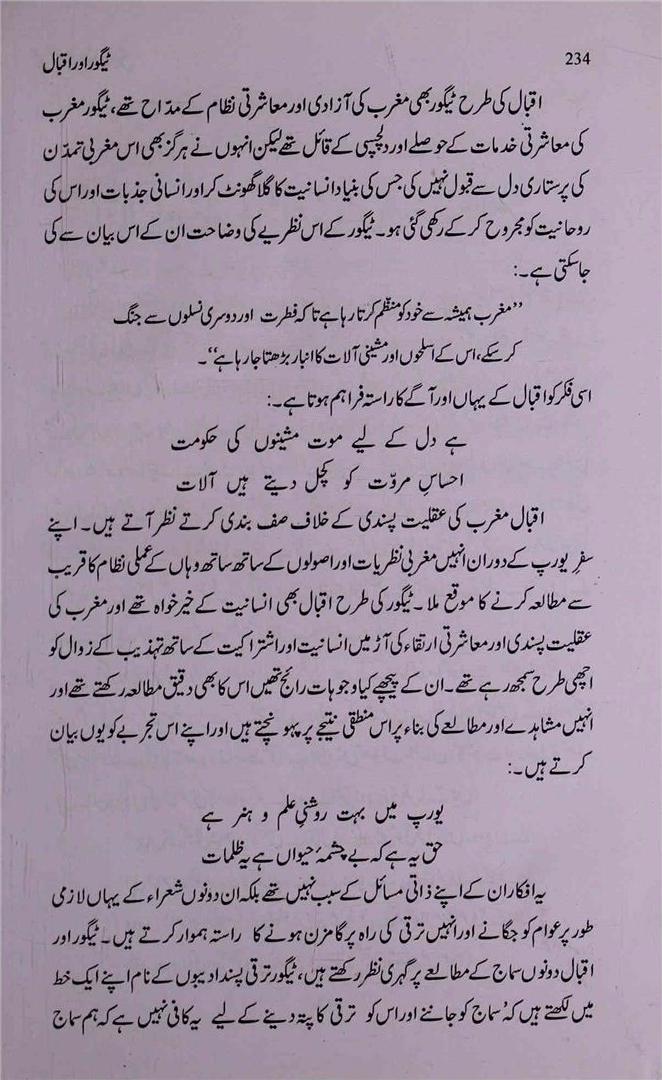 234
ٹیگور اور اقبال
اقبال کی طرح ٹیگور بھی مغرب کی آزادی اور معاشرتی نظام کے مدّاح تھے، ٹیگور مغرب
کی معاشرتی خدمات کے حوصلے اور دلچسپی کے قائل تھے لیکن انہوں نے ہرگز بھی اس مغربی تمدّن
کی پرستاری دل سے قبول نہیں کی جس کی بنیاد انسانیت کا گلا گھونٹ کر اور انسانی جذبات اور اس کی
روحانیت کو مجروح کر کے رکھی گئی ہو۔ ٹیگور کے اس نظریے کی وضاحت ان کے اس بیان سے کی
جا سکتی ہے۔:
”مغرب ہمیشہ سے خود کو منظّم کرتا رہا ہے تا کہ فطرت اور دوسری نسلوں سے جنگ
کر سکے، اس کے اسلحوں اور مشینی آلات کا انبار بڑھتا جا رہا ہے“۔
اسی فکر کو اقبال کے یہاں اور آگے کا راستہ فراہم ہوتا ہے۔:
ہے دل کے لیے موت مشینوں کی حکومت
احساسِ مروّت کو کچل دیتے ہیں آلات
اقبال مغرب کی عقلیت پسندی کے خلاف صف بندی کرتے نظر آتے ہیں۔ اپنے
سفرِ یورپ کے دوران انہیں مغربی نظریات اور اصولوں کے ساتھ ساتھ وہاں کے عملی نظام کا قریب
سے مطالعہ کرنے کا موقع ملا۔ ٹیگور کی طرح اقبال بھی انسانیت کے خیر خواہ تھے اور مغرب کی
عقلیت پسندی اور معاشرتی ارتقاء کی آڑ میں انسانیت اور اشتراکیت کے ساتھ تہذیب کے زوال کو
اچھی طرح سمجھ رہے تھے۔ ان کے پیچھے کیا وجوہات رائج تھیں اس کا بھی دقیق مطالعہ رکھتے تھے اور
انہیں مشاہدے اور مطالعے کی بناء پر اس منطقی نتیجے پر پہونچتے ہیں اور اپنے اس تجربے کو یوں بیان
کرتے ہیں۔:
یورپ میں بہت روشنیِ علم و ہنر ہے
حق یہ ہے کہ بے چشمۂ حیواں ہے یہ ظلمات
یہ افکار ان کے اپنے ذاتی مسائل کے سبب نہیں تھے بلکہ ان دونوں شعراء کے یہاں لازمی
طور پر عوام کو جگانے اور انہیں ترقی کی راہ پر گامزن ہونے کا راستہ ہموار کرتے ہیں۔ ٹیگور اور
اقبال دونوں سماج کے مطالعے پر گہری نظر رکھتے ہیں، ٹیگور ترقی پسند ادیبوں کے نام اپنے ایک خط
میں لکھتے ہیں کہ ُسماج کو جاننے اور اس کو ترقی کا پتہ دینے کے لیے یہ کافی نہیں ہے کہ ہم سماج